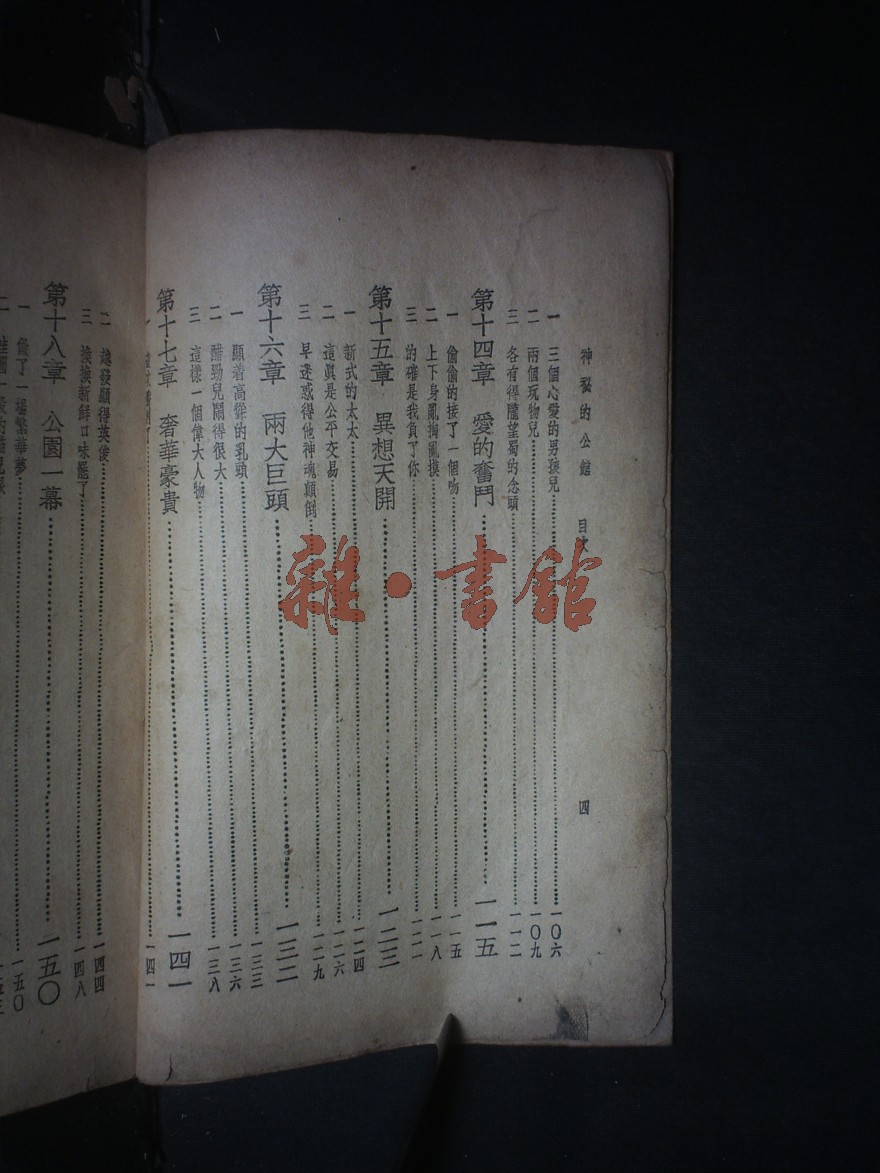 神秘的公館 目次 四
一 三個心愛的男孩兒 一〇六
二 兩個玩物兒 一〇九
三 各有得隴望蜀的念頭 一一二
第十四章 愛的奮鬥 一一五
一 偷偷的接了一個吻 一一五
二 上下身亂掏亂摸 一一八
三 的確是我負了你 一二一
第十五章 異想天開 一二三
一 新式的太太 一二四
二 這真是公平交易 一二六
三 早迷惑得他神魂顛倒 一二九
第十六章 兩大巨頭 一三二
一 顯着高聳的乳頭 一三三
二 醋勁兒鬧得很大 一三六
三 這樣一個偉大人物 一三八
第十七章 奢華豪貴 一四一
一 一四一
二 越發顯得英俊 一四四
三 換換新鮮口味罷了 一四八
第十八章 公園一幕 一五〇
一 做了一場繁華夢 一五〇
二
雜·書館